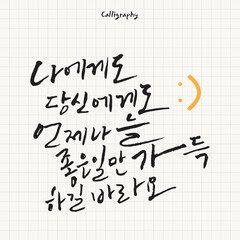 Calligraphy
나에게도
당신에게도 :)
언제나 늘
좋은일만 가득
하길 바라요